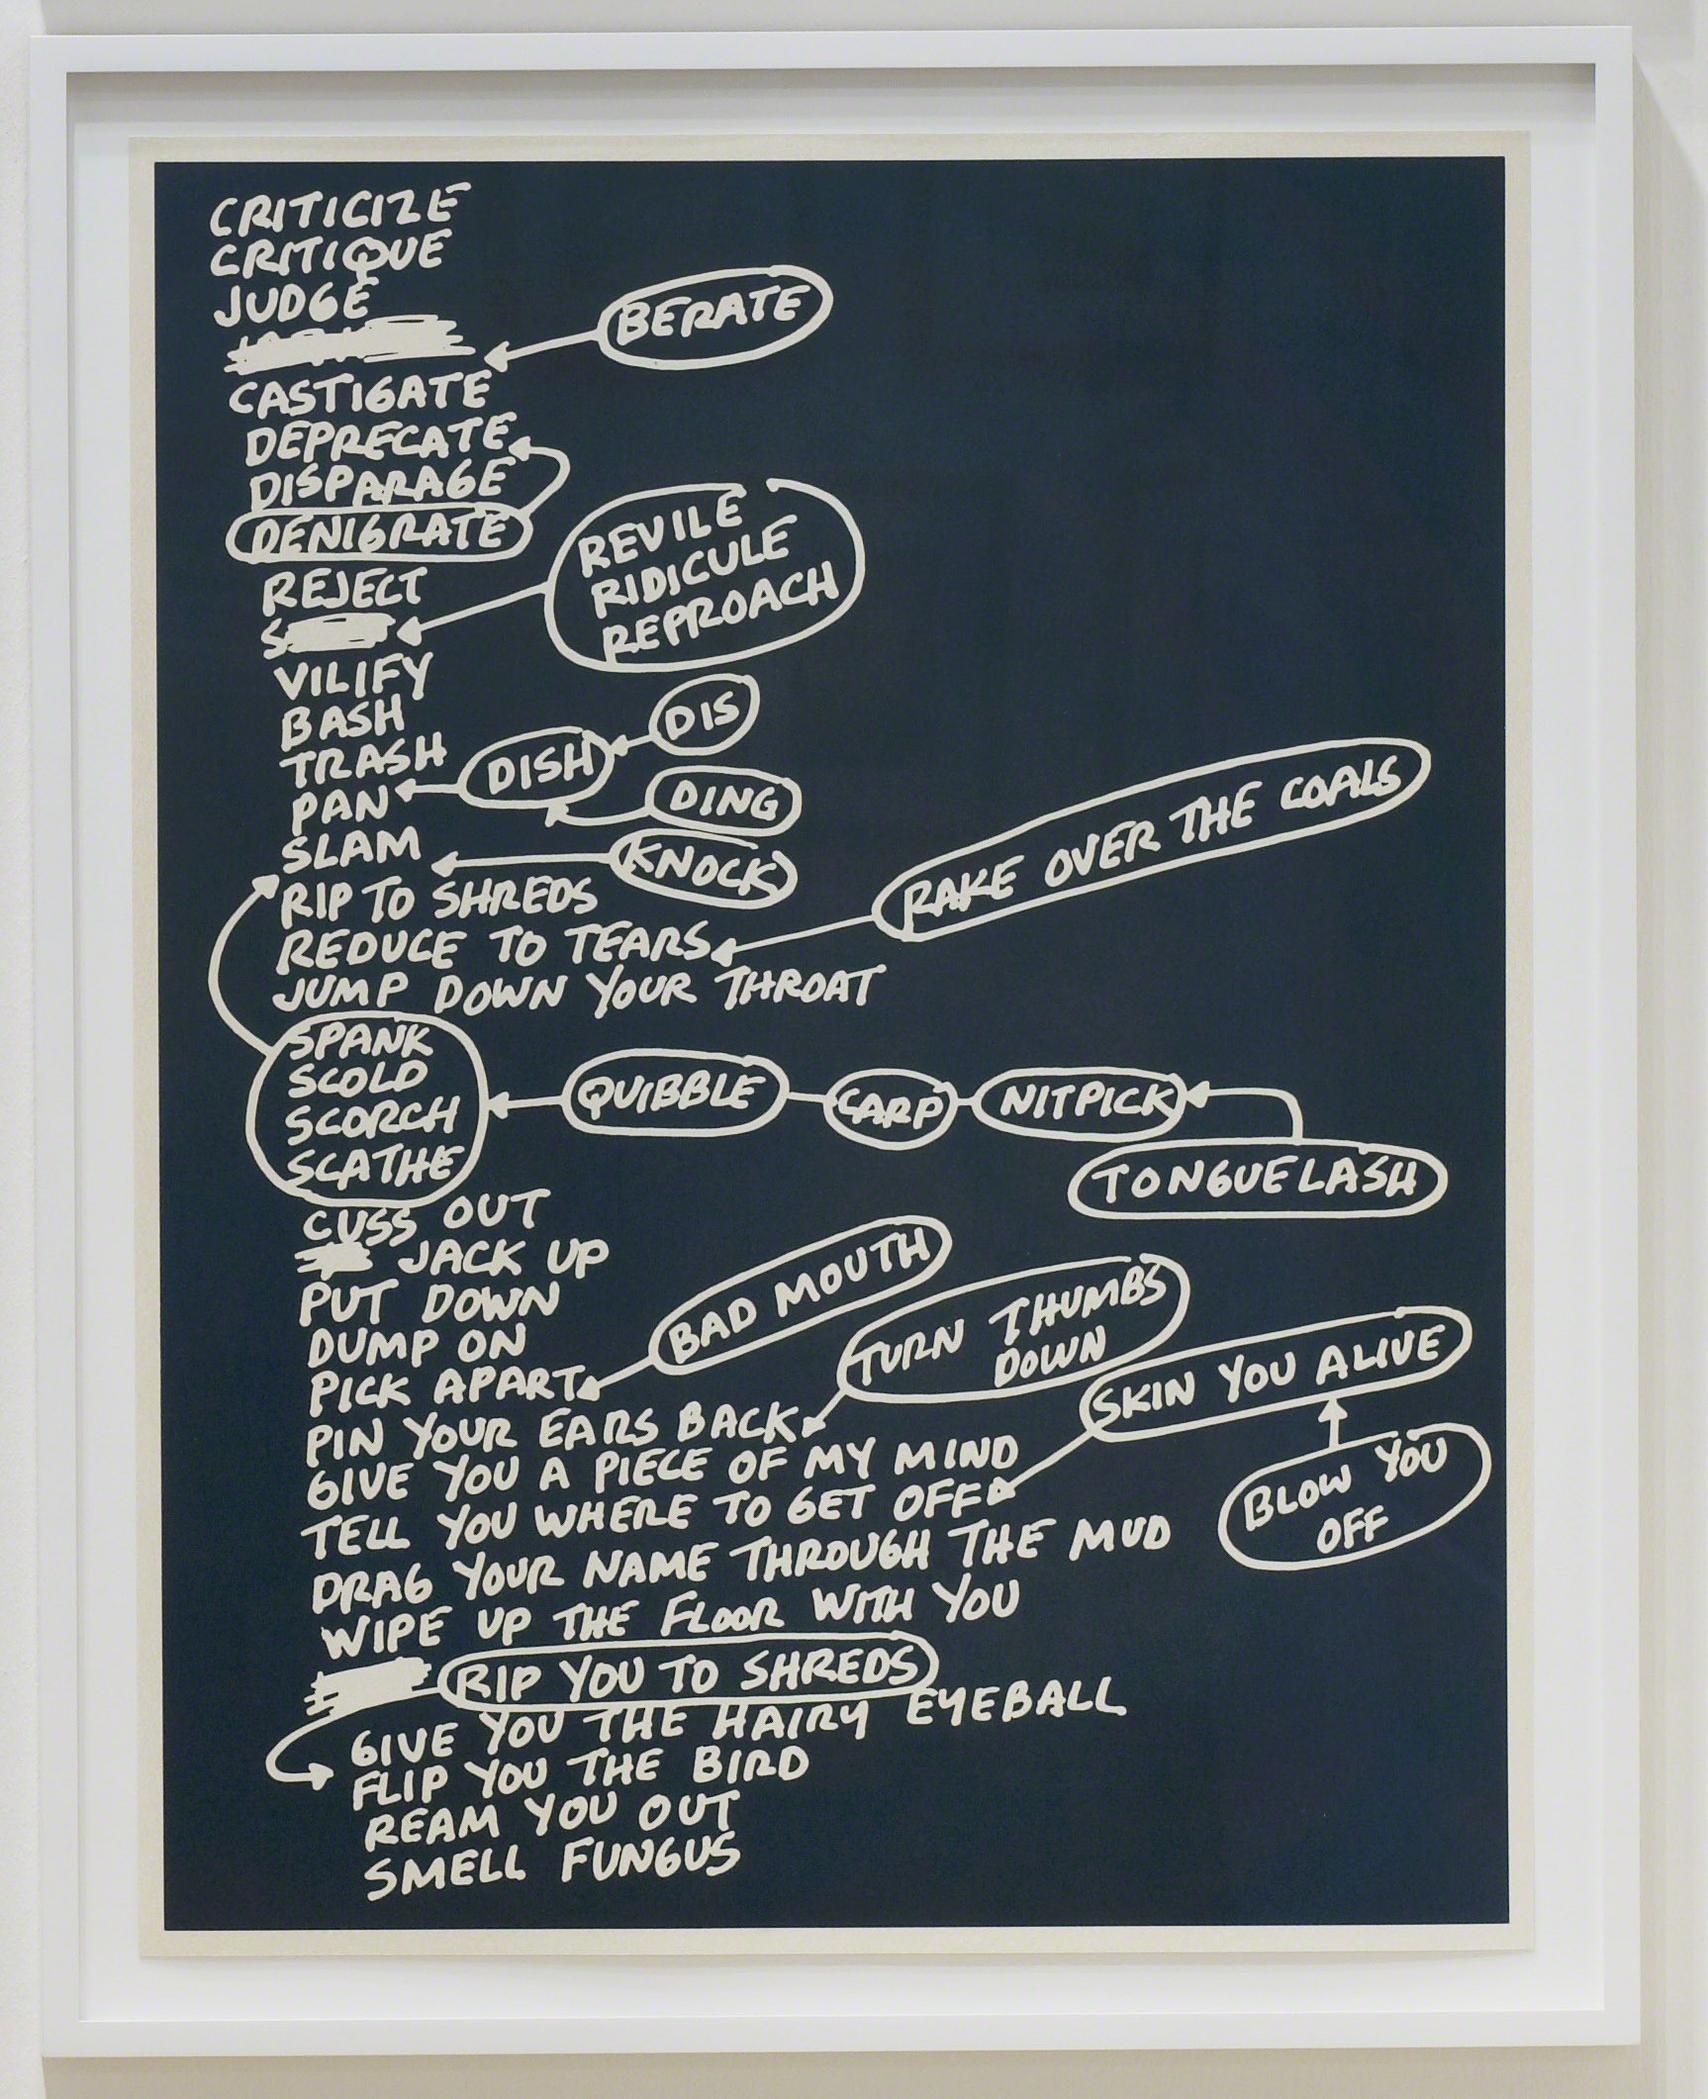 CRITICIZE
CRITIQUE
JUDGE
BERATE
CASTIGATE
DEPRECATE
DISPARAGE
DENIGRATE
REVILE
RIDICULE
REPROACH
REJECT
S
VILIFY
BASH
DIS
TRASH
DISH
PAN
DING
SLAM
KNOCK
RAKE OVER THE COALS
RIP TO SHREDS
REDUCE TO TEARS
JUMP DOWN YOUR THROAT
SPANK
SCOLD
SCORCH
SCATHE
QUIBBLE
CARP
NITPICK
TONGUELASH
CUSS OUT
JACK UP
PUT DOWN
DUMP ON
BAD MOUTH
PICK APART
TURN THUMBS
DOWN
PIN YOUR EARS BACK
SKIN YOU ALIVE
GIVE YOU A PIECE OF MY MIND
BLOW YOU
OFF
TELL YOU WHERE TO GET OFF
DRAG YOUR NAME THROUGH THE MUD
WIPE UP THE FLOOR WITH YOU
RIP YOU TO SHREDS
GIVE YOU THE HAIRY EYEBALL
FLIP YOU THE BIRD
REAM YOU OUT
SMELL FUNGUS